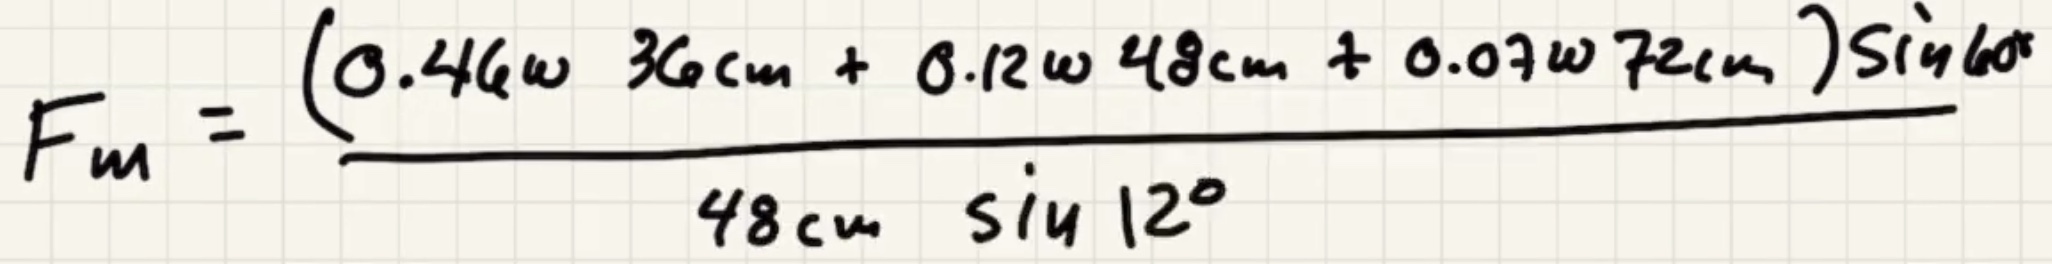 Fm = (0.46w 36cm + 0.12w 48cm + 0.07w 72cm) sin 60°
48cm sin 12°